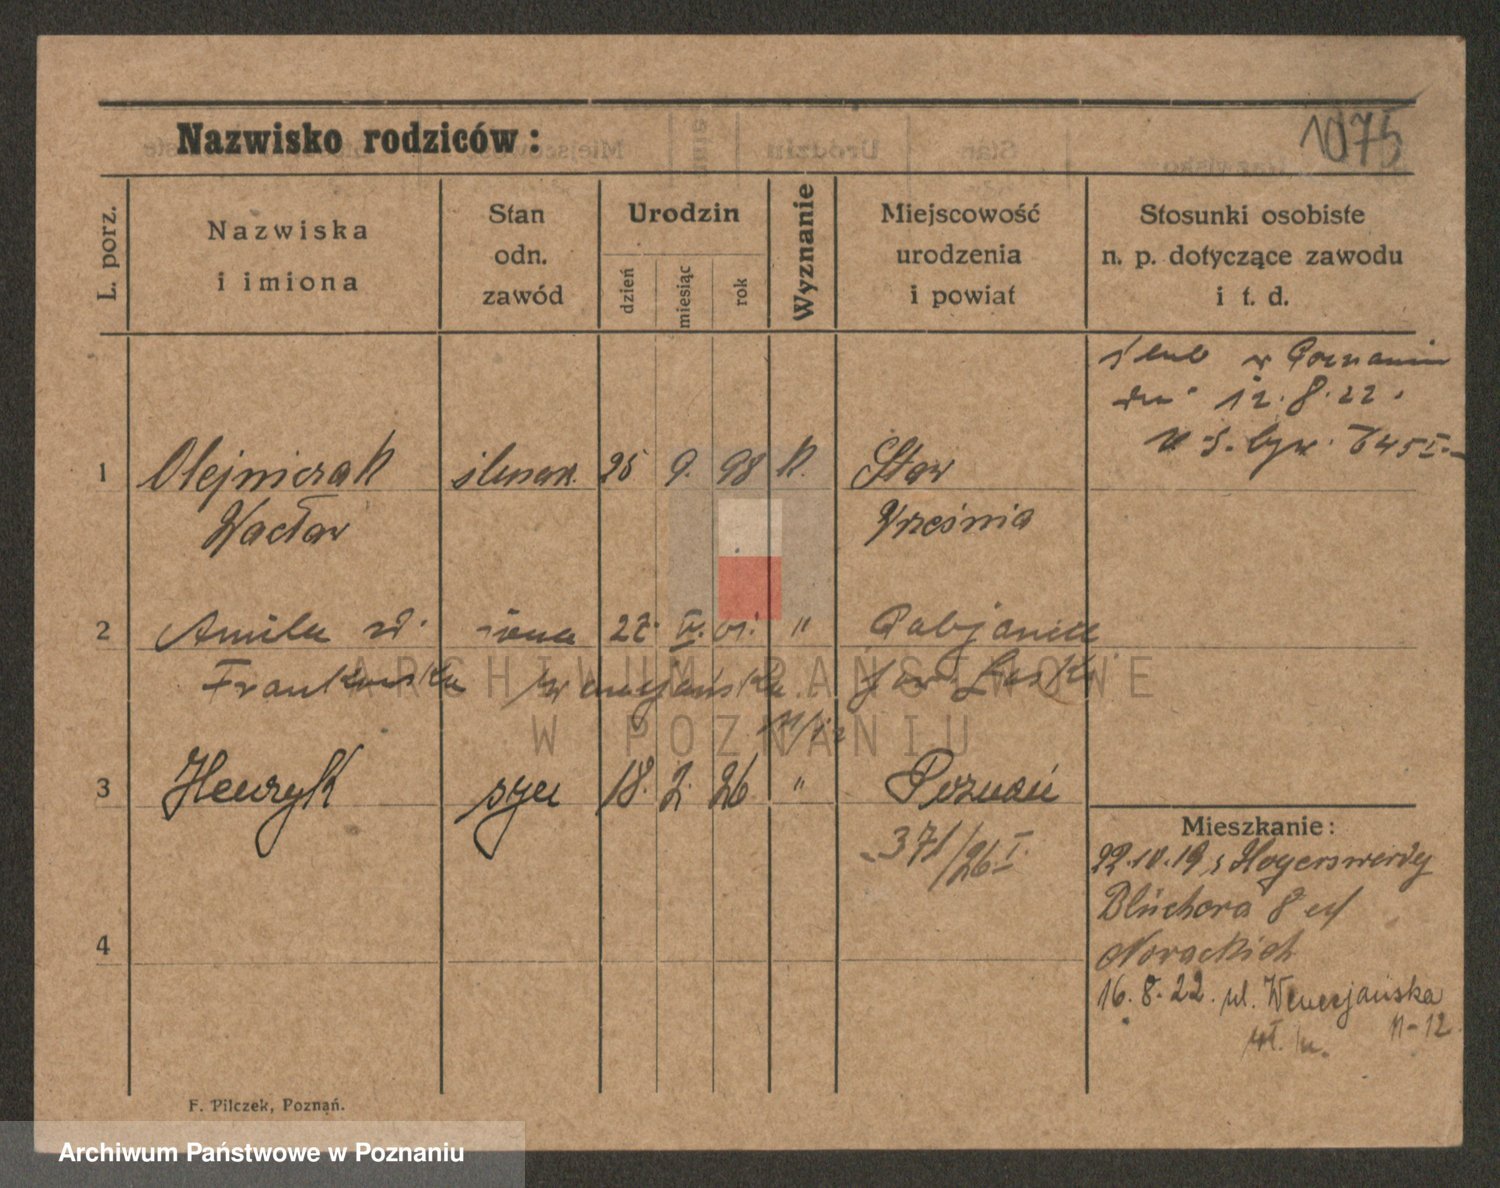 Nazwisko rodziców:
1075
L. porz.
Nazwiska
i imiona
Stan
odn.
zawód
Urodzin
dzień
miesiąc
rok
Wyznanie
Miejscowość
urodzenia
i powiat
Stosunki osobiste
n. p. dotyczące zawodu
i t. d.
ślub w Poznaniu
dn. 12.8.22.
1 Olejniczak ślusar. 25 9. 98 k. Staw
Wacław Września
2 Amila ż. żona 22. IV. 01. " Pabjanice
Frankowska Wenecjańska
11/12
3 Henryk syn 18. 2. 26 " Poznań
371/26 I.
4
Mieszkanie:
22.10.19 z Hoyerswerdy
Blüchora 8
Nowackich
16.8.22. ul. Wenecjańska
11-12
F. Pilczek, Poznań.
ARCHIWUM PAŃSTWOWE
W POZNANIU
Archiwum Państwowe w Poznaniu